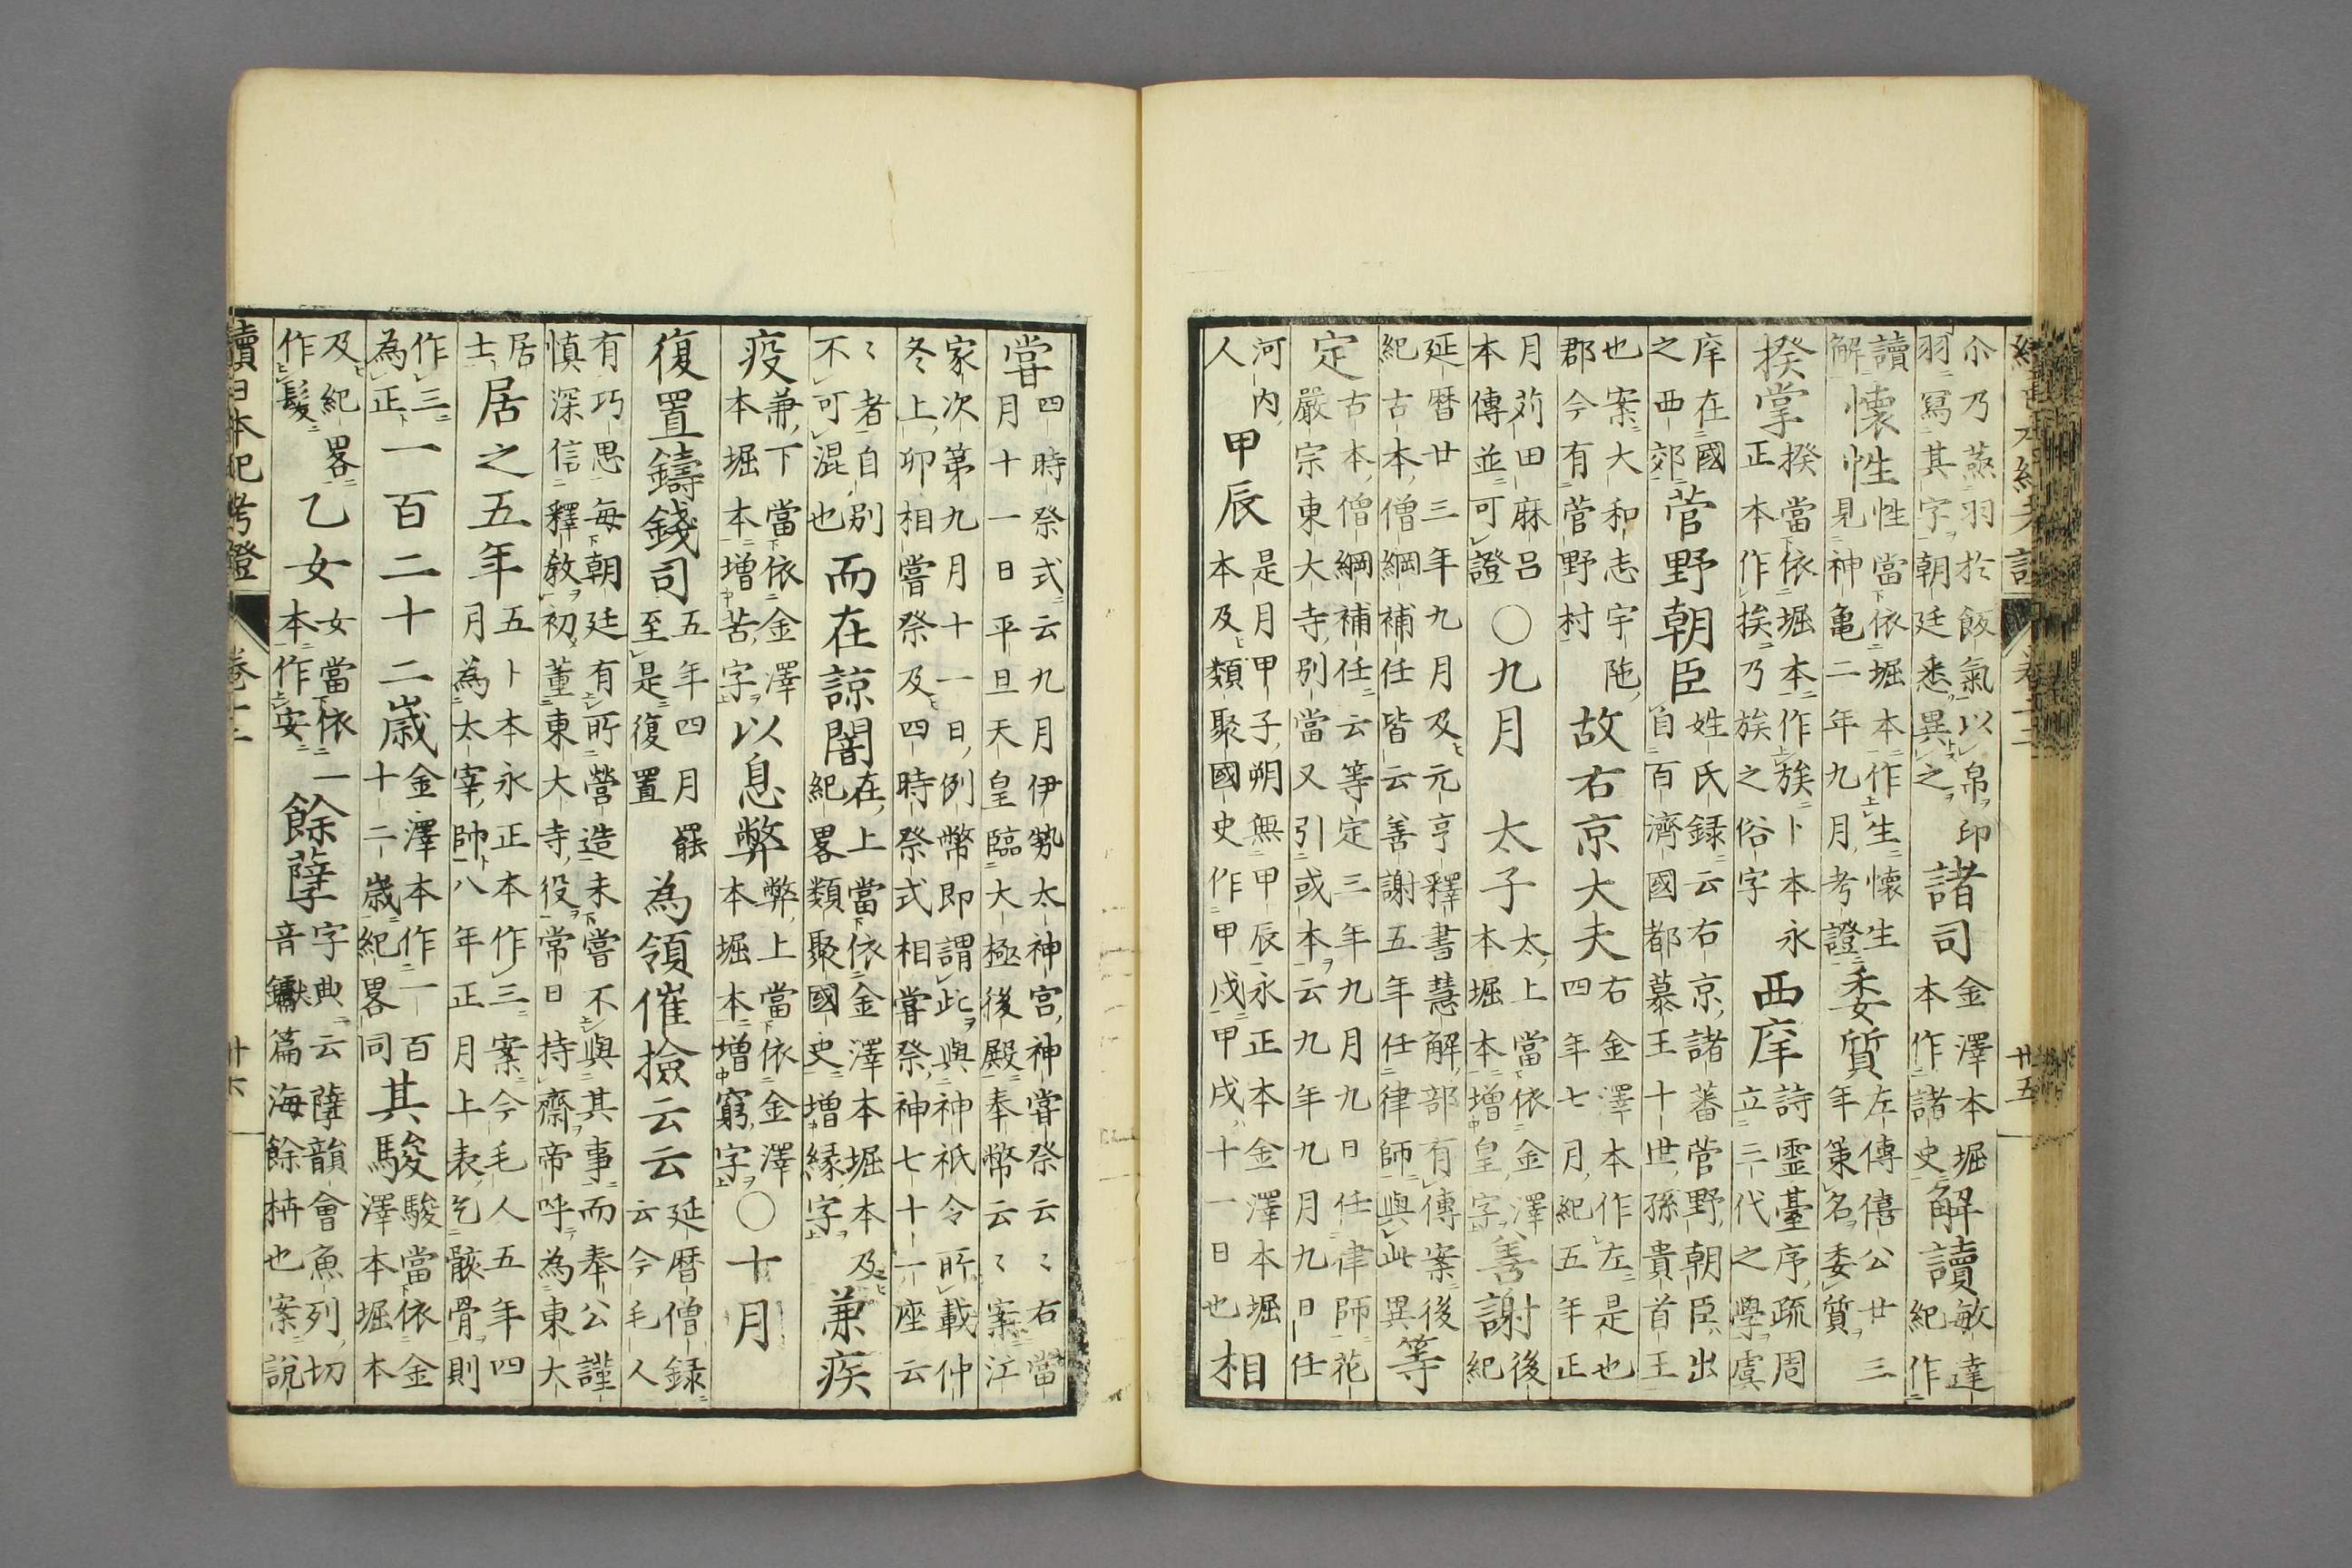 尒乃蒸羽於飯氣以帛印
羽寫其字朝廷悉異之
諸司
金澤本堀
本作諸史
解讀
敏達
紀作
讀
解
懷性
性當依堀本作生懷生
見神亀二年九月考證
委質
左傳僖公廿三
年策名委質
揆掌
揆當依堀本作族卜本永
正本作挨乃族之俗字
西庠
詩霊臺序疏周
立三代之學虞
庠在國
之西郊
菅野朝臣
姓氏録云右京諸蕃菅野朝臣出
自百濟國都慕王十世孫貴首王
也案大和志宇陁
郡今有菅野村
故右京大夫
右金澤本作左是也
四年七月紀五年正
月苅田麻呂
本傳並可證
〇九月 太子
太上當依金澤
本堀本增皇字
善謝
後
紀
延暦廿三年九月及元亨釋書慧解部有傳案後
紀古本僧綱補任皆云善謝五年任律師與此異
等
定
古本僧綱補任云等定三年九月九日任律師花
嚴宗東大寺別當又引或本云九年九月九日任
河内
人
甲辰
是月甲子朔無甲辰永正本金澤本堀
本及類聚國史作甲戌甲戌十一日也
相
廿五
甞
四時祭式云九月伊勢太神宮神甞祭云〻右當
月十一日平旦天皇臨大極後殿奉幣云〻案江
家次第九月十一日例幣即謂此與神祇令所載仲
冬上卯相甞祭及四時祭式相甞祭神七十一座云
〻者自別
不可混也
而在諒闇
在上當依金澤本堀本及
紀畧類聚國史增縁字
兼疾
疫
兼下當依金澤
本堀本增苦字
以息弊
弊上當依金澤
本堀本增窮字
〇十月
復置鑄錢司
五年四月罷
至是復置
為領催撿云云
延暦僧録
云今毛人
有巧思毎朝廷有所營造未甞不與其事而奉公謹
慎深信釋教初董東大寺役常日持齋帝呼為東大
居
士
居之五年
五卜本永正本作三案今毛人五年四
月為太宰帥八年正月上表乞骸骨則
作三
為正
一百二十二歳
金澤本作一百
十二歳紀畧同
其駿
駿當依金
澤本堀本
及紀畧
作髪
乙女
女當依一
本作安
餘薩
字典云薩韻會魚列切
音钀篇海餘枿也案說
續日本紀考證 卷十二 廿六